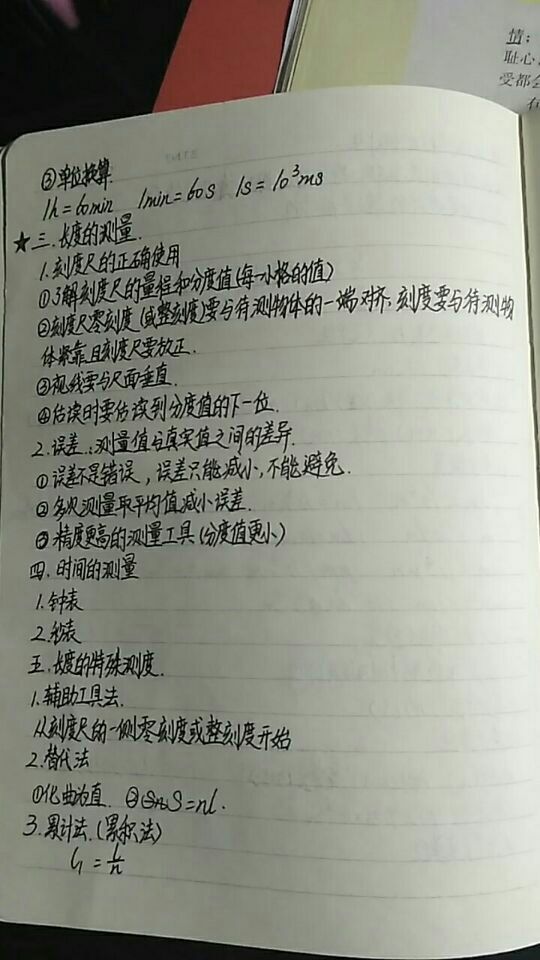 情:
耻心
受都会
③单位换算.
1h=60min 1min=60s 1s=10³ms
★三.长度的测量.
1.刻度尺的正确使用
①了解刻度尺的量程和分度值(每一小格的值)
②刻度尺零刻度(或整刻度)要与待测物体的一端对齐.刻度要与待测物
体紧靠且刻度尺要放正.
③视线要与尺面垂直.
④估读时要估读到分度值的下一位.
2.误差:测量值与真实值之间的差异.
①误差不是错误,误差只能减小,不能避免.
②多次测量取平均值减小误差.
③精度更高的测量工具(分度值更小)
四.时间的测量
1.钟表
2.秒表
五.长度的特殊测度.
1.辅助工具法.
从刻度尺的一侧零刻度或整刻度开始
2.替代法
①化曲为直. ② S=nl.
3.累计法.(累积法)
l₁=l/n